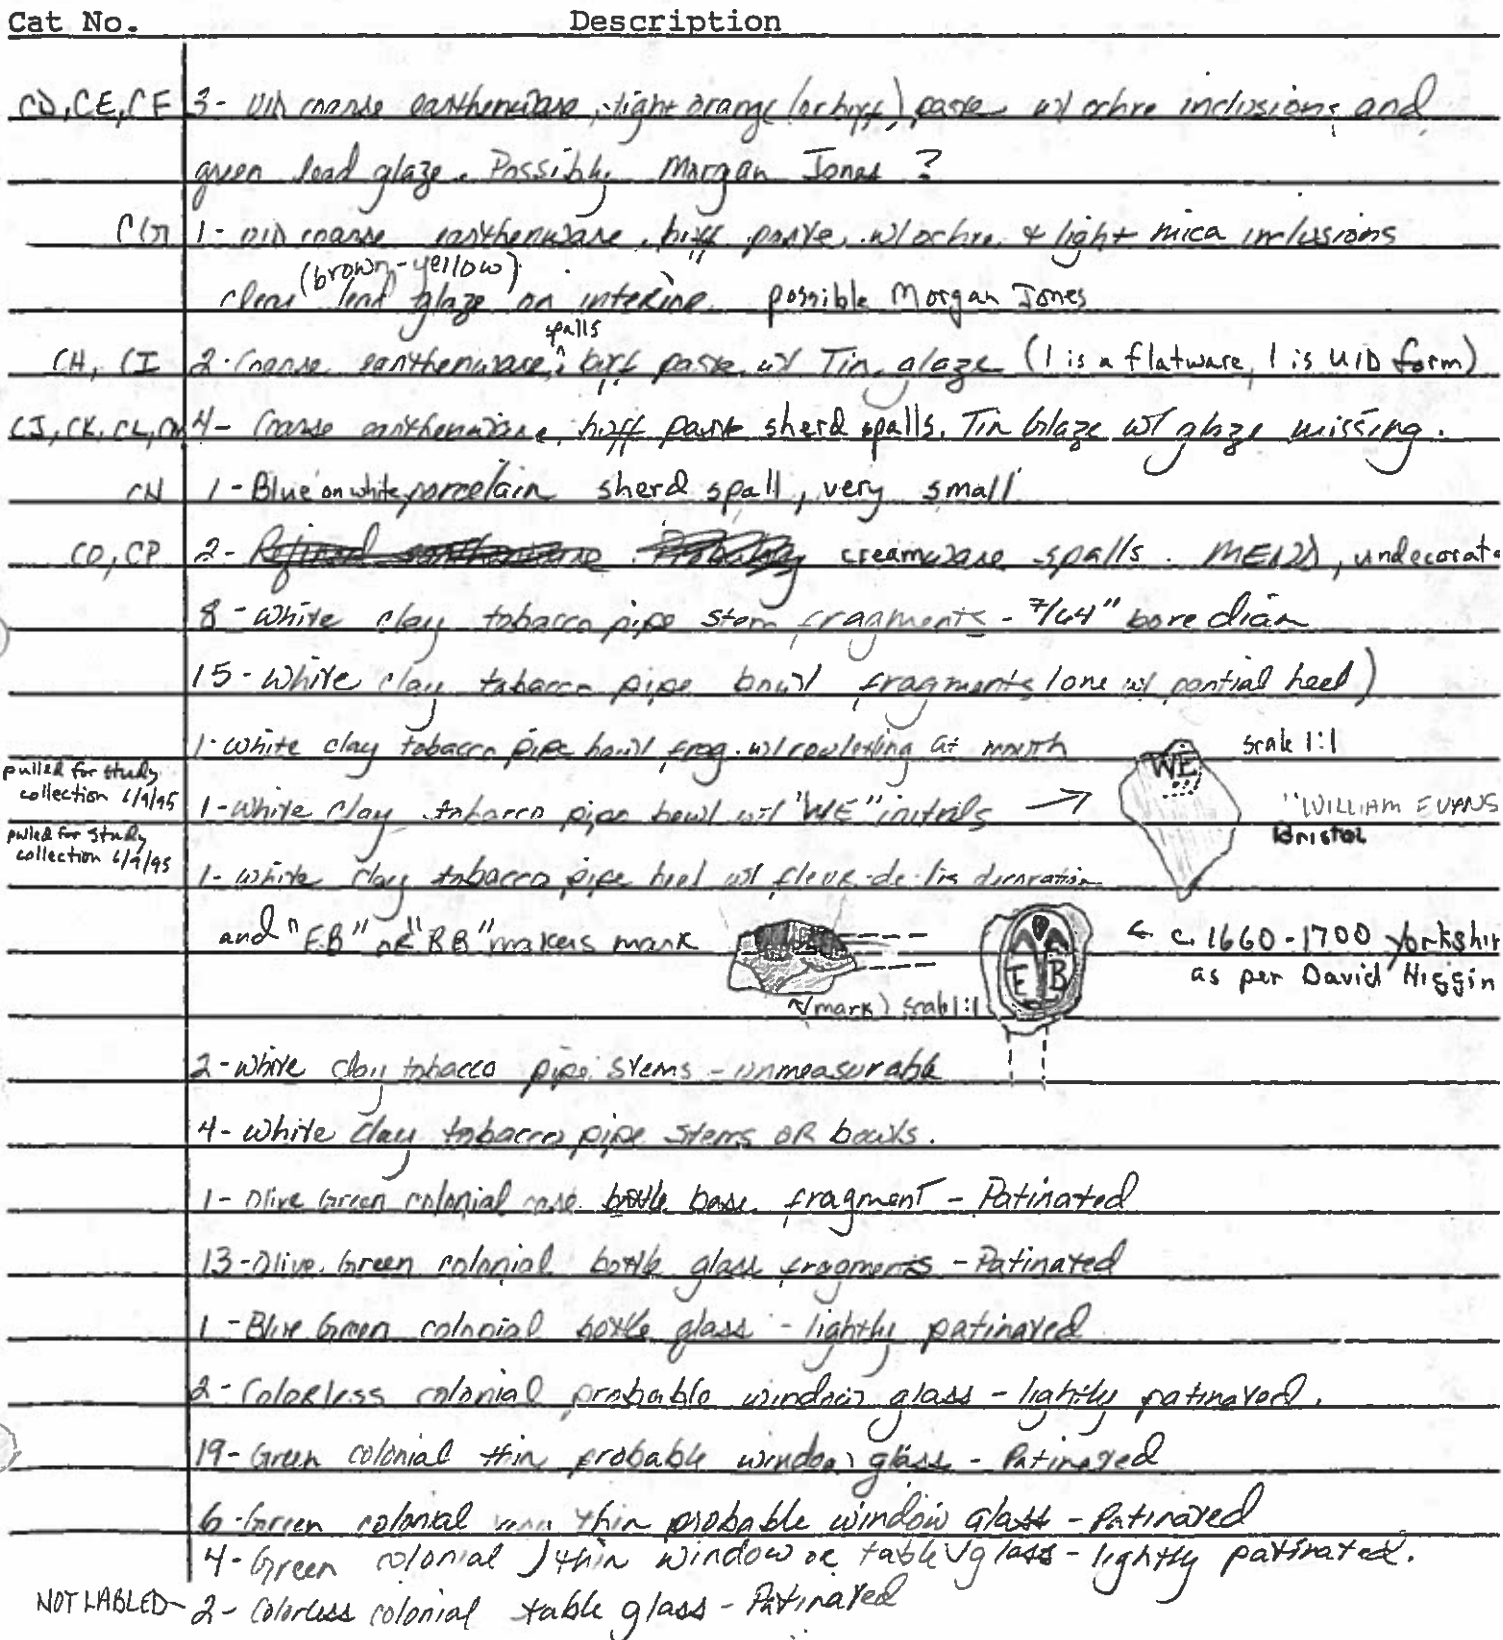 Cat No. Description
CD, CE, CF 3- UID coarse earthenware, light orange (or buff) paste w/ ochre inclusions and
green lead glaze. Possibly Morgan Jones ?
CG 1- UID coarse earthenware, buff paste, w/ ochre & light mica inclusions
(brown-yellow)
clear lead glaze on interior possible Morgan Jones
spalls
CH, CI 2- Coarse earthenware, buff paste w/ Tin glaze (1 is a flatware, 1 is UID form)
CJ, CK, CL, CM 4- Coarse earthenware, buff paste sherd spalls. Tin Glaze w/ glaze missing.
CN 1- Blue on white, porcelain sherd spall, very small
CO, CP 2- Refined earthenware. Probably creamware spalls. undecorat
8- White clay tobacco pipe stem fragments - 7/64" bore diam
15- White clay tobacco pipe bowl fragments (one w/ partial heel)
1- White clay tobacco pipe bowl frag. w/ rouletting at mouth
scale 1:1
WE
pulled for study
collection 6/9/95
1- White clay tobacco pipe bowl w/ "WE" initials
"WILLIAM EVANS
Bristol
pulled for study
collection 6/9/95
1- white clay tobacco pipe heel w/ fleur-de-lis decoration
and "EB" or "RB" makers mark
E B
← c. 1660-1700 Yorkshir
as per David Higgin
(mark) scale 1:1
2- White clay tobacco pipe stems - unmeasurable
4- White clay tobacco pipe stems OR bowls.
1- Olive Green colonial case bottle base fragment - Patinated
13- Olive Green colonial bottle glass fragments - Patinated
1- Blue Green colonial bottle glass - lightly patinated
2- Colorless colonial probable window glass - lightly patinated.
19- Green colonial thin probable window glass - Patinated
6- Green colonial very thin probable window glass - Patinated
4- Green colonial thin window or table glass - lightly patinated.
NOT LABLED- 2- Colorless colonial table glass - Patinated